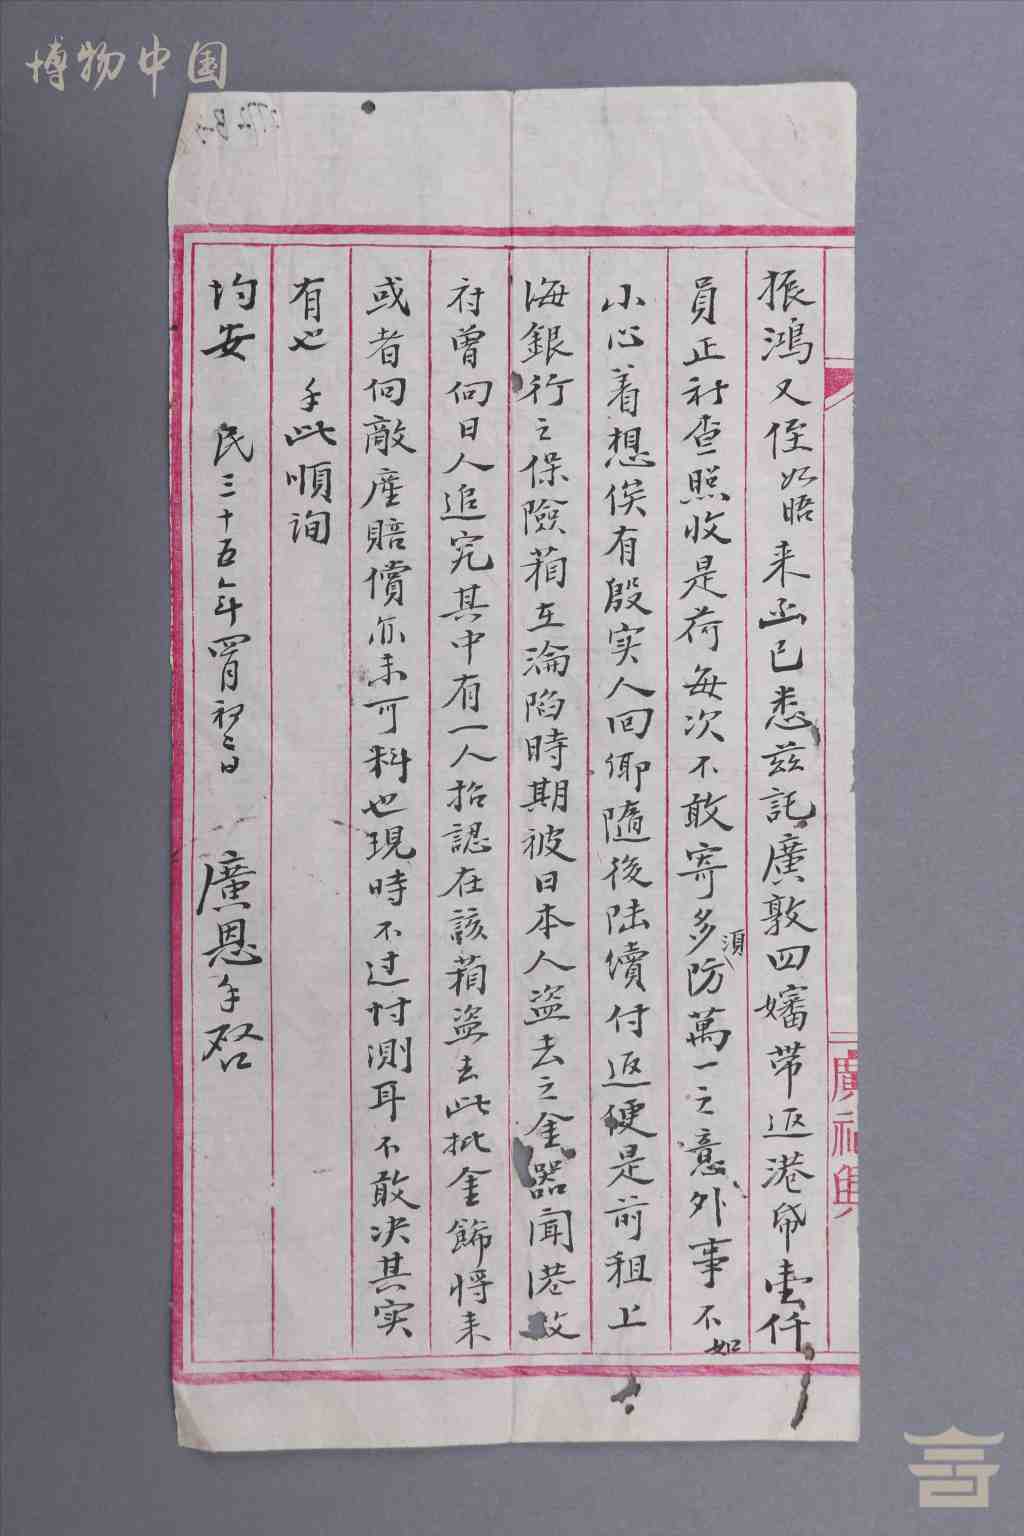 博物中国
振鴻又侄如晤来函已悉兹託廣敦四嬸带返港帋壹仟
員正祈查照收是荷每次不敢寄多須防萬一之意外事不如
小心着想俟有殷实人回鄉隨後陆續付返便是前租上
海銀行之保險箱在淪陷時期被日本人盗去之金器聞港政
府曾向日人追究其中有一人招認在該箱盗去此批金飾将来
或者向敵産賠償亦未可料也現時不过忖測耳不敢决其实
有也手此順詢
均安 民三十五年四月初二日 廣恩手啓
廣祐興